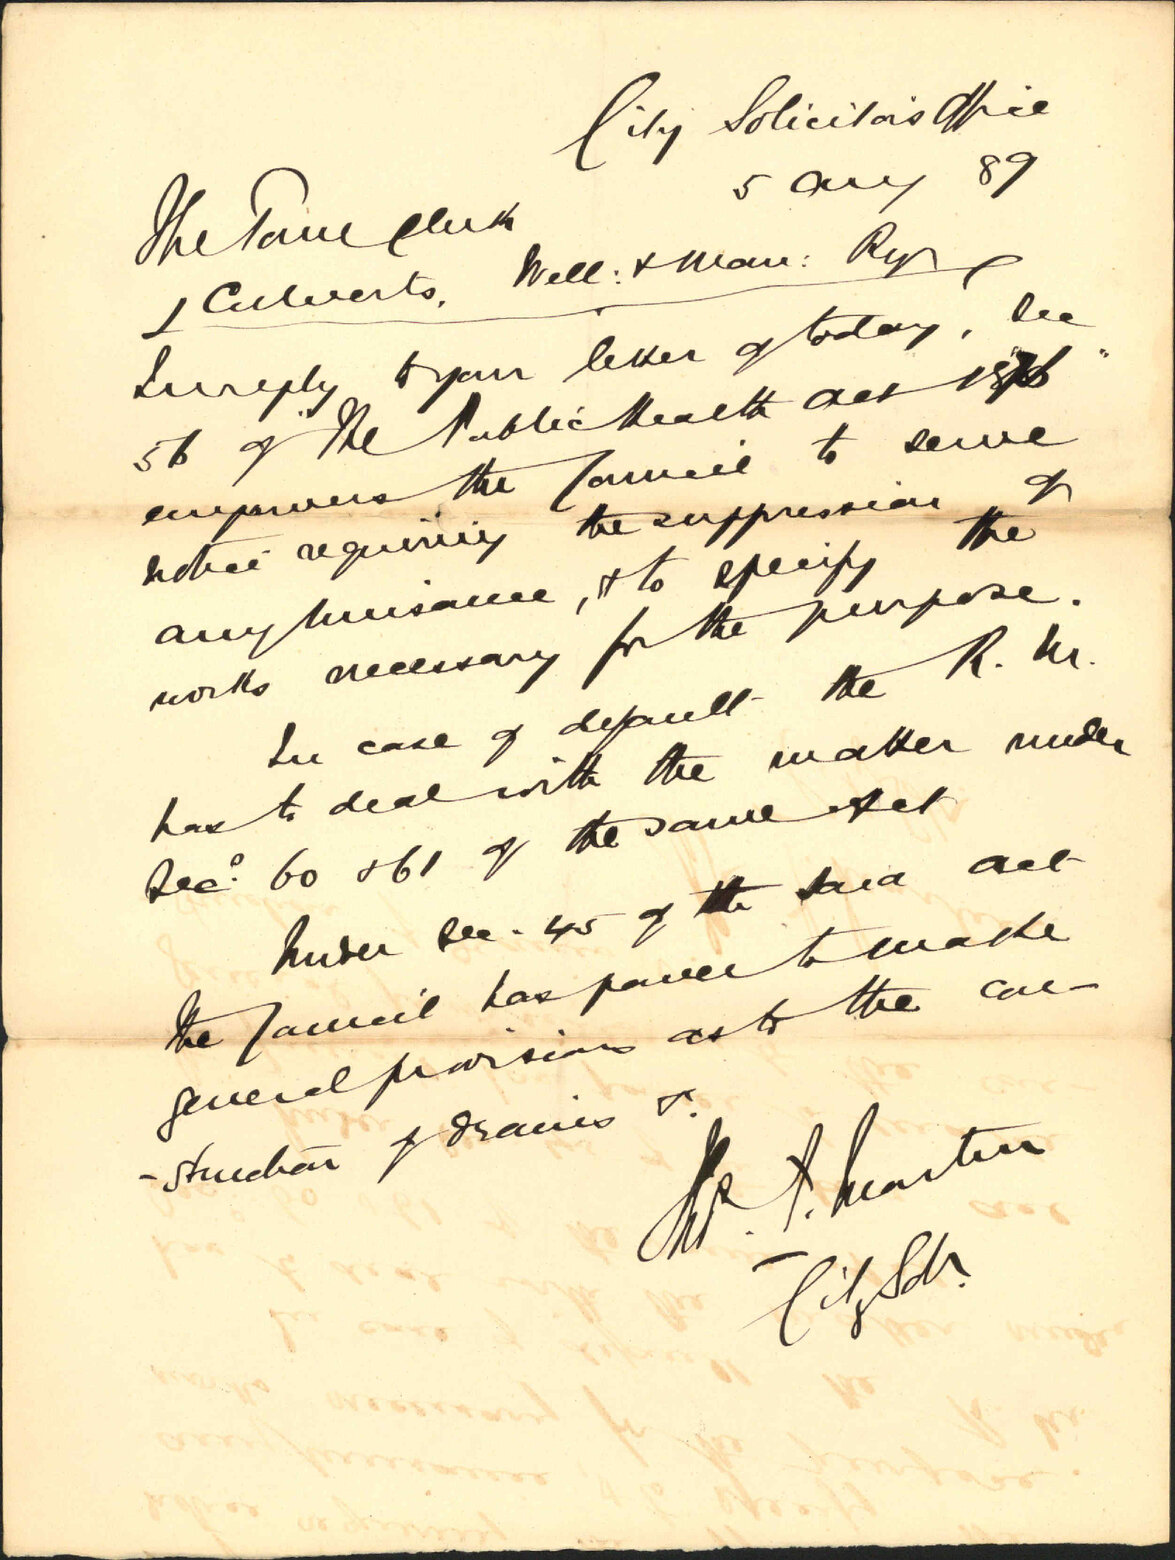 City Solicitor's Office
5 Aug 89
The Town Clerk
Culverts. Well: & Man: Ry
In reply to your letter of today, Sec
56 of "The Public Health Act 1876"
empowers the Council to serve
notice requiring the suppression of
any nuisance, & to specify the
works necessary for the purpose.
In case of default the R. M.
has to deal with the matter under
Secs. 60 & 61 of the same Act
Under Sec. 45 of the said Act
the Council has power to make
general provisions as to the con-
-struction of drains &c.
T. F. Martin
City Solr.